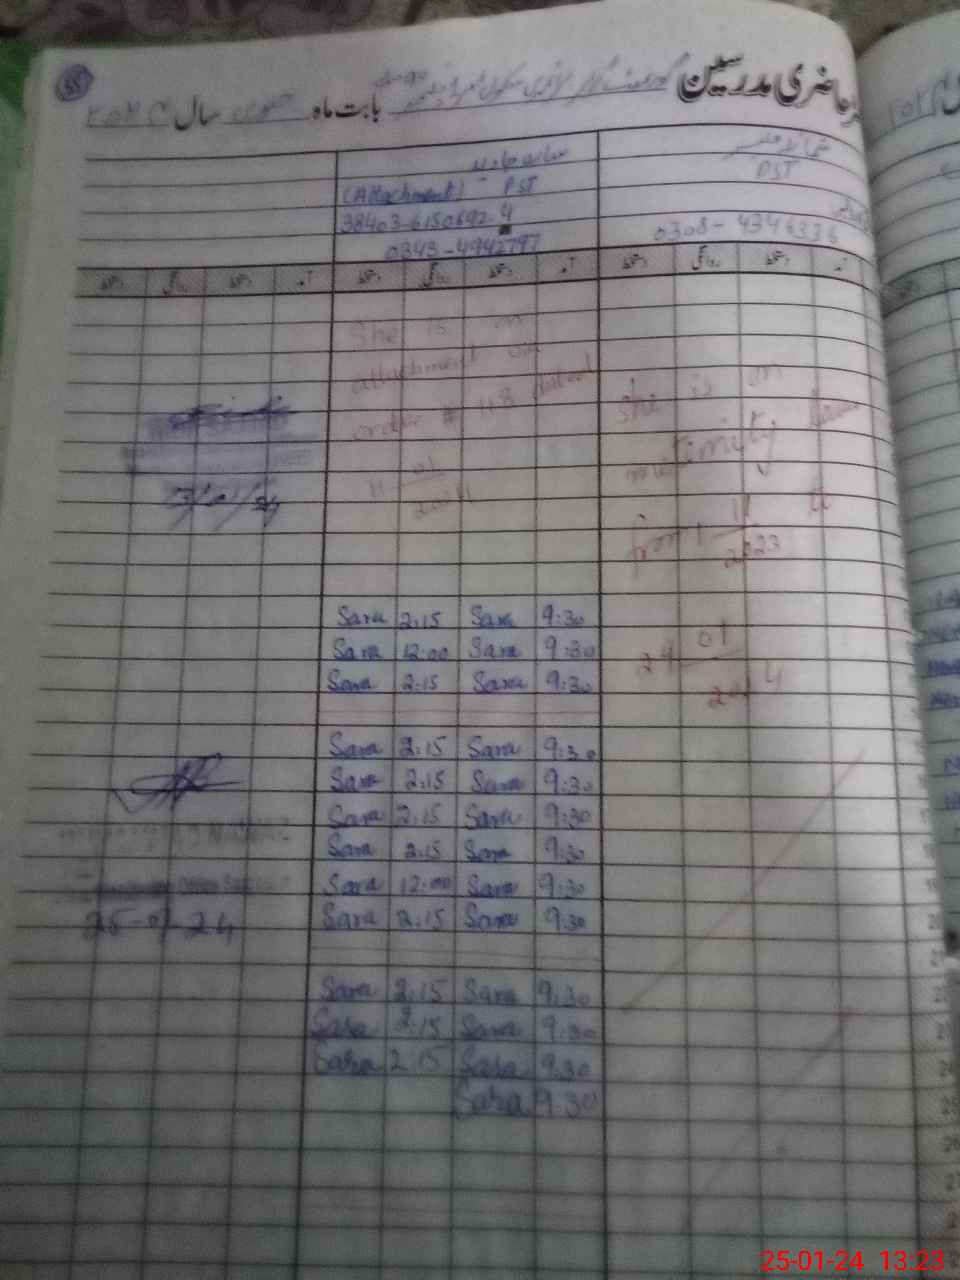 حاضری مدرسین گورنمنٹ گرلز پرائمری سکول بابت ماہ جنوری سال ۲۰۲۴
55
PST
0308-4346336
(Attachment) PST
38403-6150692-4
0343-4942797
آمد دستخط روانگی دستخط آمد دستخط روانگی دستخط آمد دستخط روانگی دستخط
She is on
attachment
order # 118 dated
11 01
2024
She is on
maternity leave
from 1 11
2023
29 01
2024
3/01/24
Sara 2:15 Sara 9:30
Sara 12:00 Sara 9:30
Sara 2:15 Sara 9:30
Sara 2:15 Sara 9:30
Sara 2:15 Sara 9:30
Sara 2:15 Sara 9:30
Sara 2:15 Sara 9:30
Sara 12:00 Sara 9:30
Sara 2:15 Sara 9:30
25-01-24
Sara 2:15 Sara 9:30
Sara 2:15 Sara 9:30
Sara 2:15 Sara 9:30
Sara 9:30
25-01-24 13:23